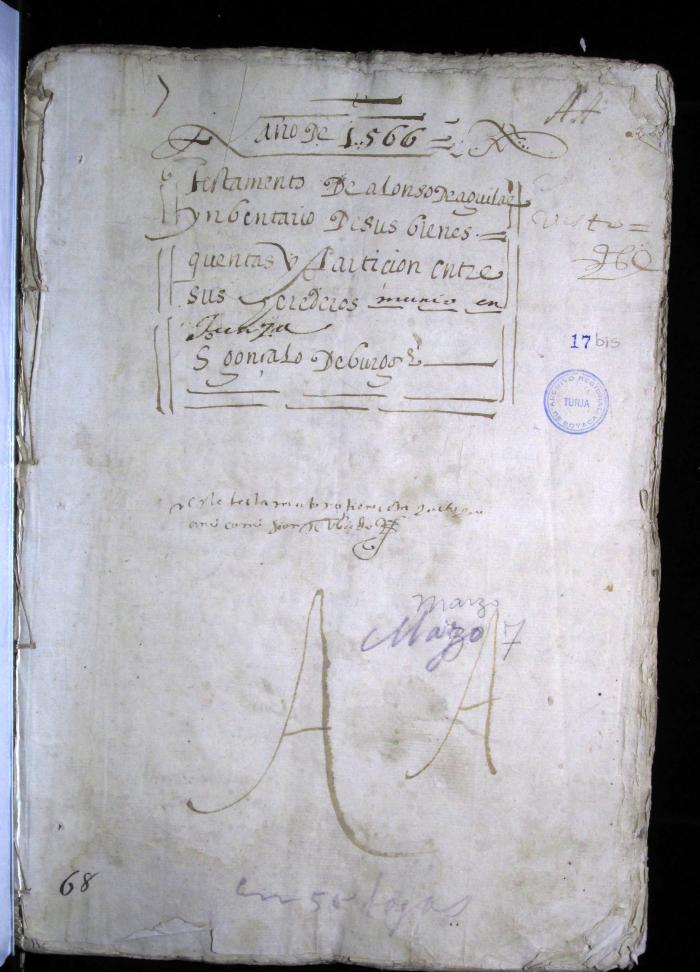 AA
año De 1566
testamento De alonso Deaguilar
Ynbentario Desus bienes
quentas y Particion entre
sus herederos murio en
Tunja
S gonçalo Deburgos
visto =
17 bis
ARCHIVO REGIONAL DE BOYACA
TUNJA
este testamento
Marzo
Marzo 7
A A
68
en 50 fojas